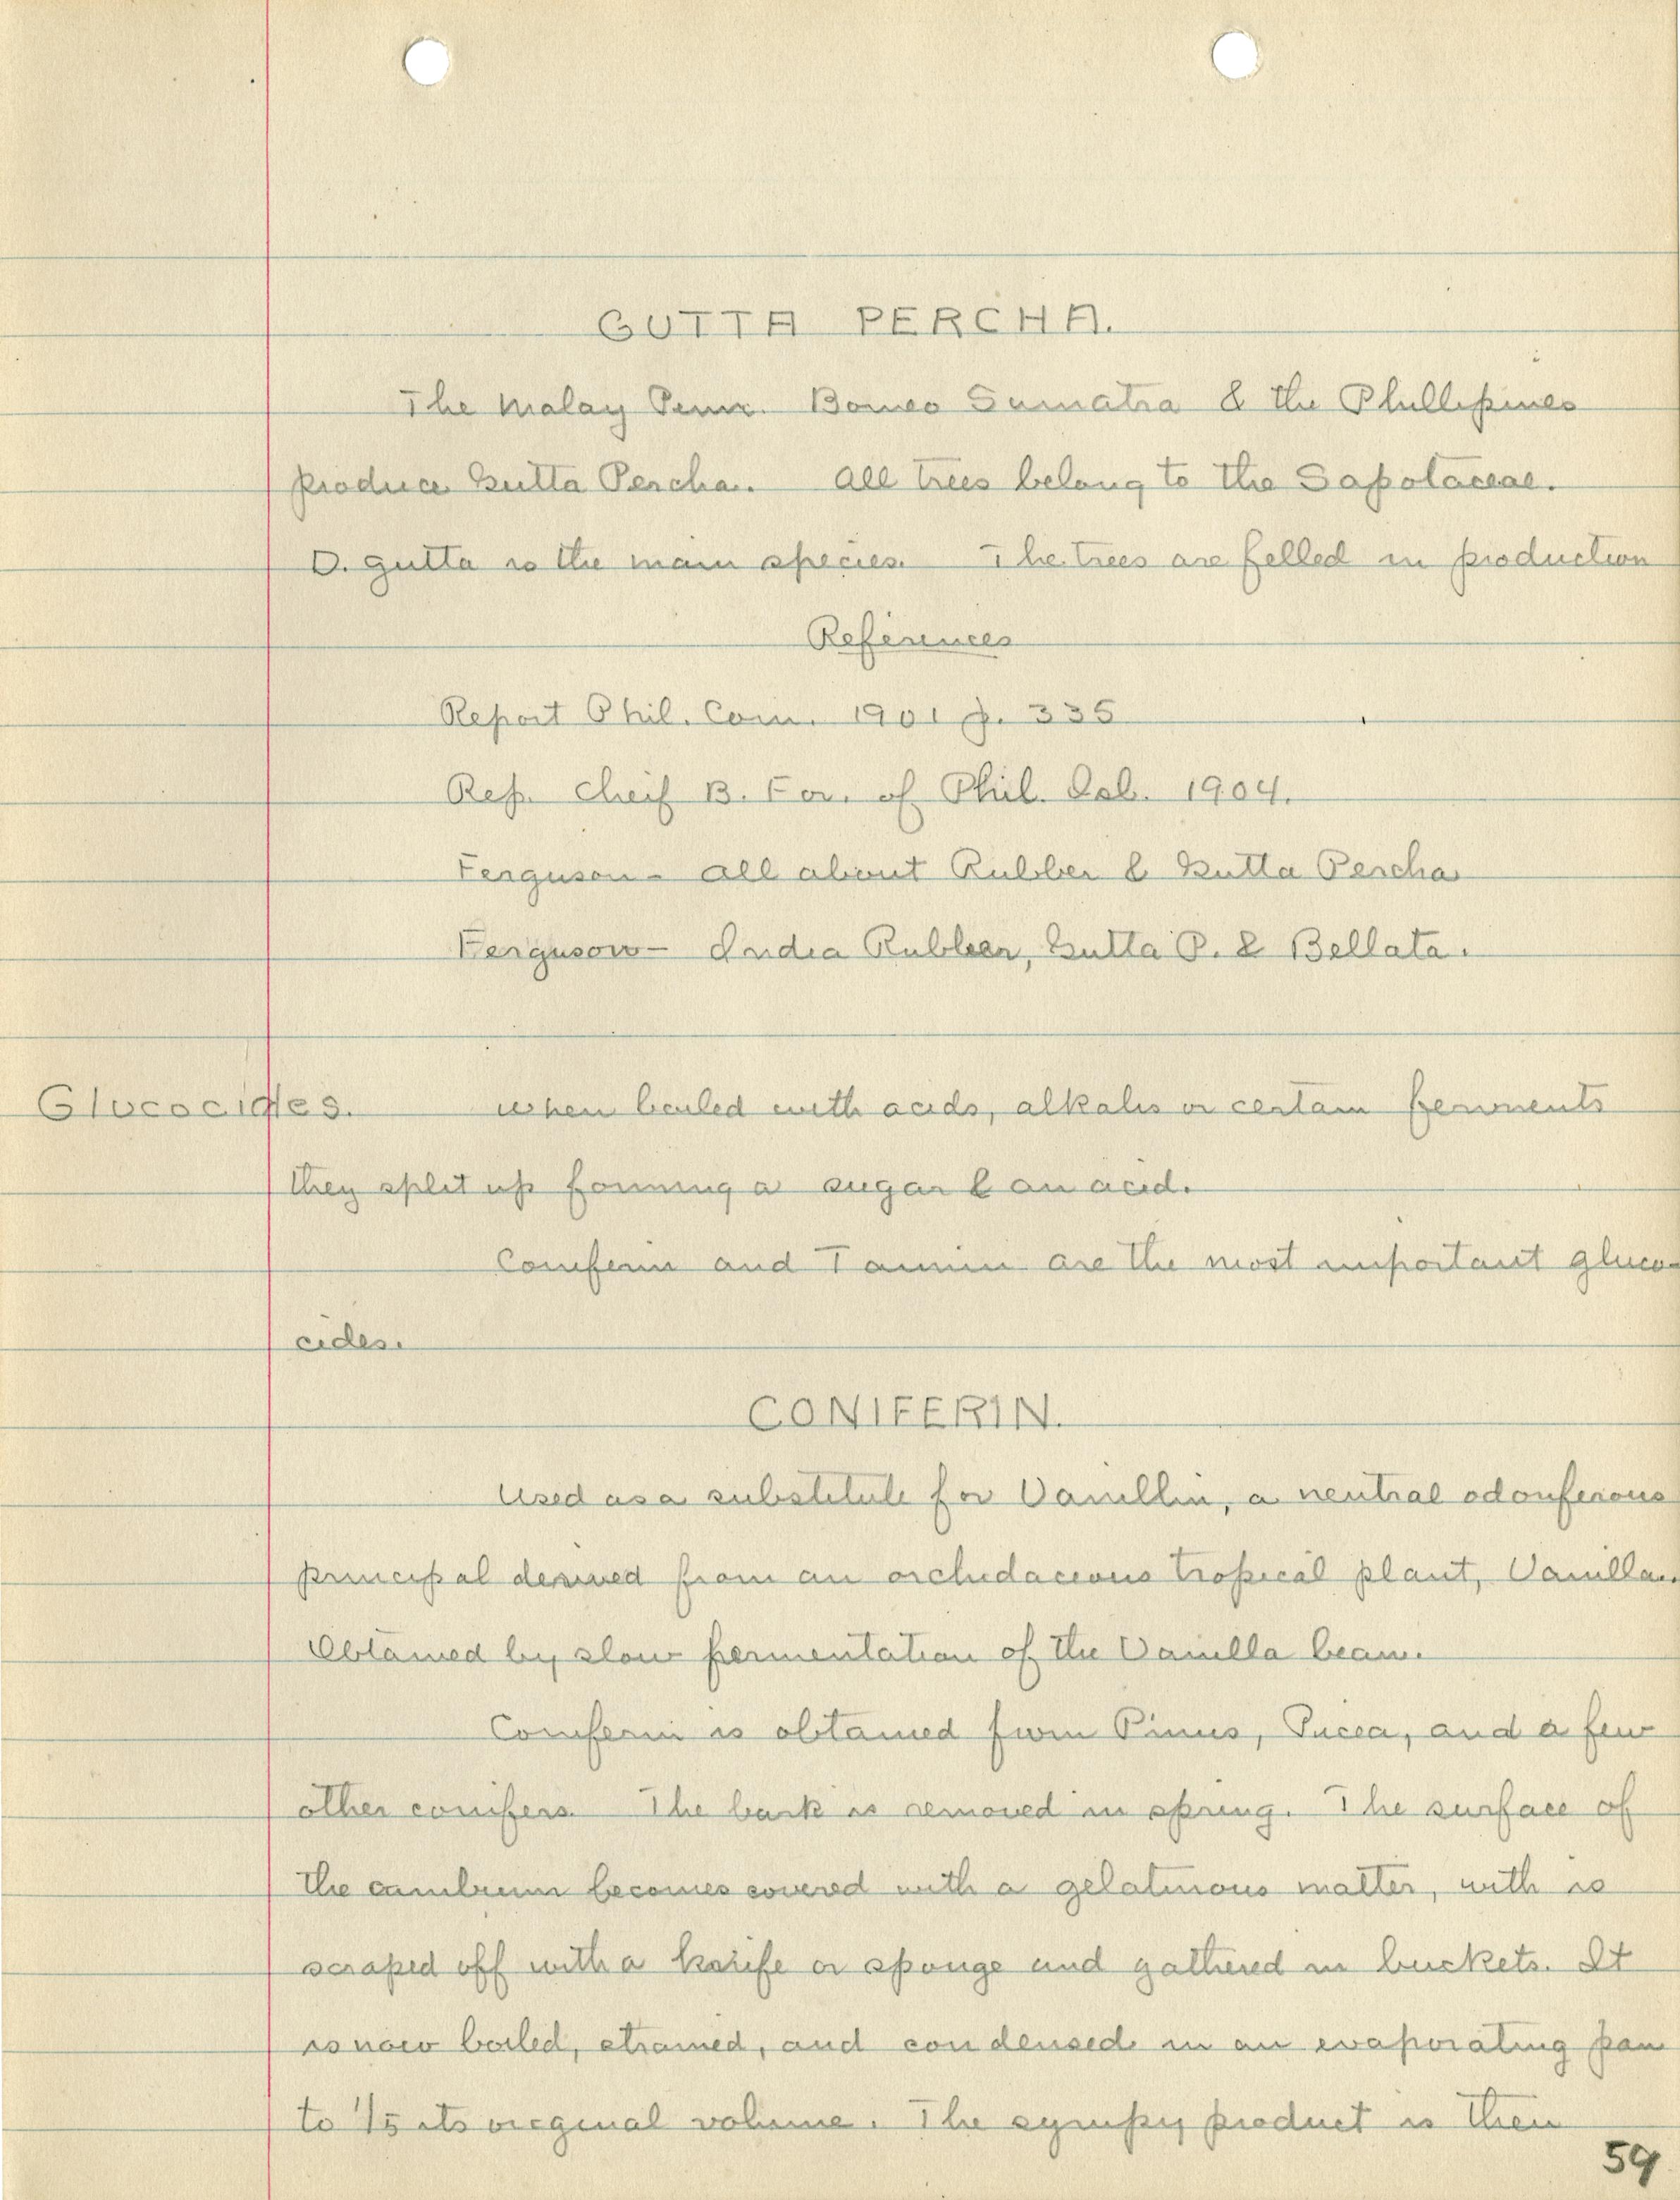 GUTTA PERCHA.
The Malay Penn. Borneo Sumatra & the Phillipines
produce Gutta Percha. All trees belong to the Sapotaceae.
D. gutta is the main species. The trees are felled in production
References
Report Phil. Com. 1901 p. 335
Rep. Cheif B. For. of Phil. Isl. 1904.
Ferguson - All about Rubber & Gutta Percha
Ferguson - India Rubber, Gutta P. & Bellata.
Glucocides. when boiled with acids, alkalis or certain ferments
they split up forming a sugar & an acid.
Coniferin and Tannin are the most important gluco-
cides.
CONIFERIN.
Used as a substitute for Vanillin, a neutral odoriferous
principal derived from an orchidacious tropical plant, Vanilla.
Obtained by slow fermentation of the Vanilla bean.
Coniferin is obtained from Pinus, Picea, and a few
other conifers. The bark is removed in spring. The surface of
the cambium becomes covered with a gelatinous matter, with is
scraped off with a knife or sponge and gathered in buckets. It
is now boiled, strained, and condensed in an evaporating pan
to 1/5 its original volume. The syrupy product is then
59